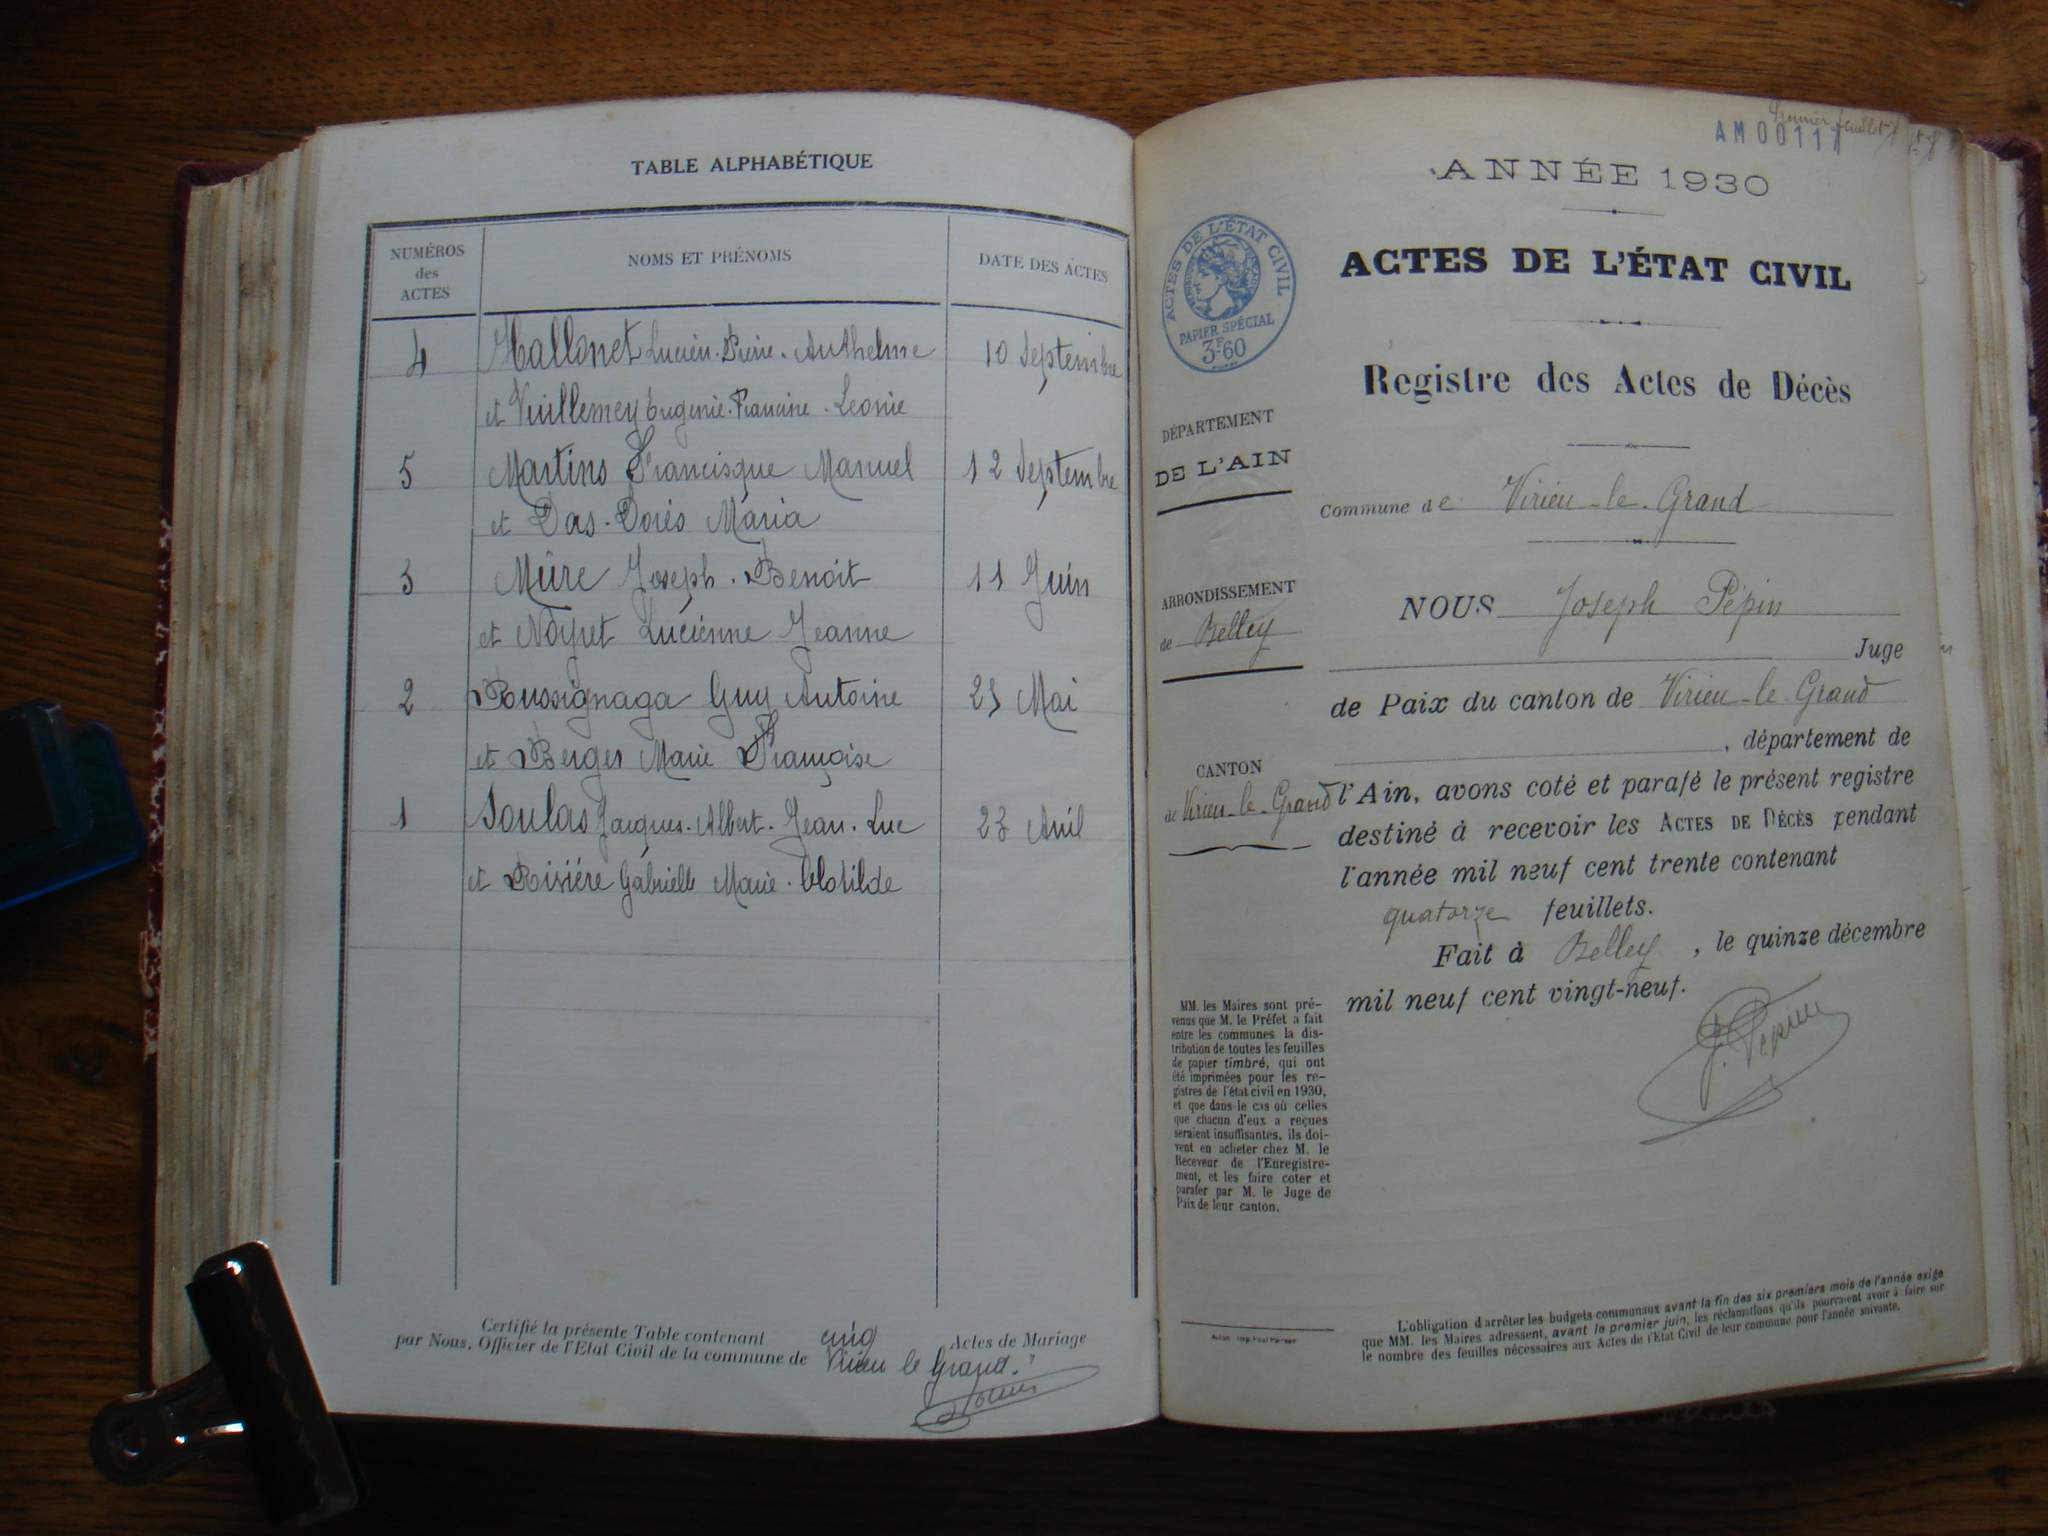 TABLE ALPHABÉTIQUE
NUMÉROS
des
ACTES
NOMS ET PRÉNOMS
DATE DES ACTES
4 Hallonet Lucien. Pierre. Anthelme 10 Septembre
et Vuillemey Eugenie. Francine. Leonie
5 Martins Francisque Manuel 12 Septembre
et Das. Dorés Maria
3 Mûre Joseph. Benoit 11 Juin
et Noyret Lucienne Jeanne
2 Russignaga Guy Antoine 25 Mai
et Berger Marie Françoise
1 Soulas Jacques. Albert. Jean. Luc 23 Avril
et Rivière Gabrielle Marie. Clotilde
Certifié la présente Table contenant cinq Actes de Mariage
par Nous, Officier de l'Etat Civil de la commune de Virieu le Grand.
AM00111
ANNÉE 1930
ACTES DE L'ÉTAT CIVIL
PAPIER SPÉCIAL
3F.60
ACTES DE L'ÉTAT CIVIL
Registre des Actes de Décès
DÉPARTEMENT
DE L'AIN
Commune de Virieu-le-Grand
ARRONDISSEMENT
de Belley
NOUS Joseph Pépin
Juge
de Paix du canton de Virieu-le-Grand
, département de
CANTON
de Virieu-le-Grand
l'Ain, avons coté et parafé le présent registre
destiné à recevoir les ACTES DE DÉCÈS pendant
l'année mil neuf cent trente contenant
quatorze feuillets.
Fait à Belley, le quinze décembre
mil neuf cent vingt-neuf.
J. Pépin
MM. les Maires sont pré-
venus que M. le Préfet a fait
entre les communes la dis-
tribution de toutes les feuilles
de papier timbré, qui ont
été imprimées pour les re-
gistres de l'état civil en 1930,
et que dans le cas où celles
que chacun d'eux a reçues
seraient insuffisantes, ils doi-
vent en acheter chez M. le
Receveur de l'Enregistre-
ment, et les faire coter et
parafer par M. le Juge de
Paix de leur canton.
L'obligation d'arrêter les budgets communaux avant la fin des six premiers mois de l'année exige
que MM. les Maires adressent, avant le premier juin, les réclamations qu'ils pourraient avoir à faire sur
le nombre des feuilles nécessaires aux Actes de l'Etat Civil de leur commune pour l'année suivante.